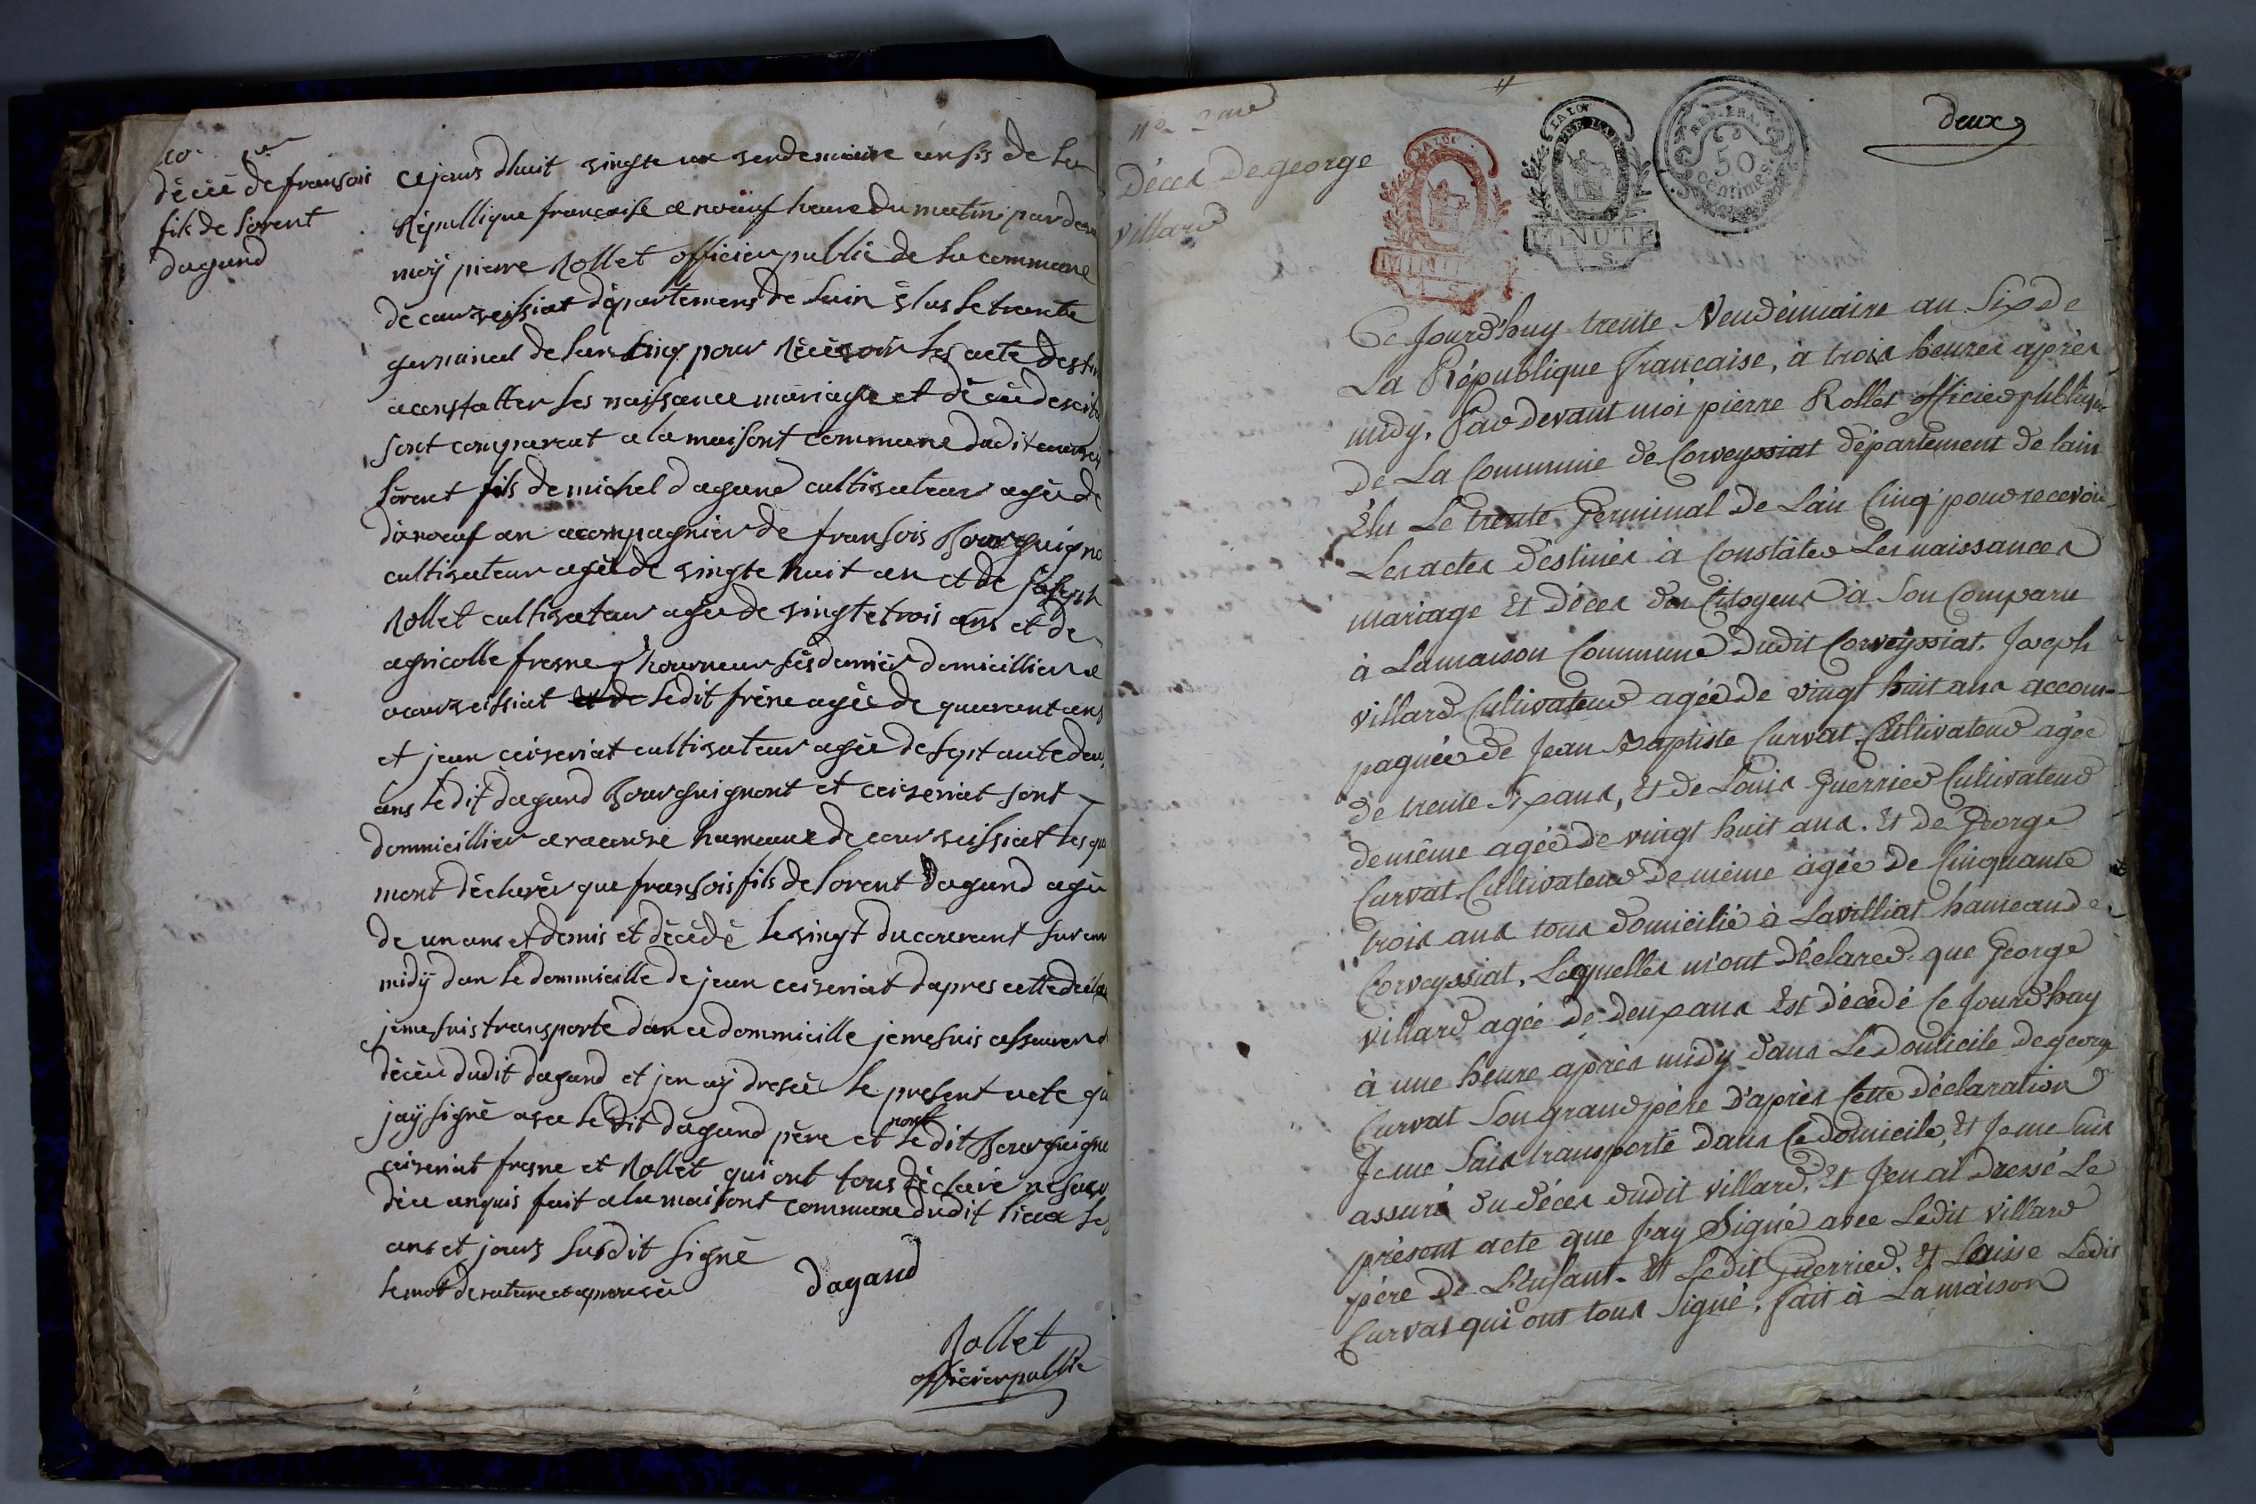 décéé de fransois
fils de Lorent
dagand
ce jours dhuit vingte un vendemiaire an sis de la
Républlique francaise a nœuf heure du matin par deva
moÿ pierre Rollet officier public de la commune
de courveissiat départemens de lain élus le trante
germainal de lan cinq pour récévoir les acte destin
a constatter les naissance mariage et décéé des cito
sont comparut a la maisont commune dudit courvei
Lorent fils de michel dagand cultivateur agée de
dixnoeuf an acompagnier de fransois Bourguigno
cultivateur agée de vingte huit an et de joseph
Rollet cultivateur agée de vingte trois ans et de
agricolle fresne tourneur les dernier domicillier
a courveissiat et de ledit frêne agée de quarant ans
et jean ceizeriat cultivateur agée de septante deux
ans le dit dagand Bourguignont et ceizeriat sont
dommicillier a racouze hameaux de courveissiat lesque
mont déclarér que fransois fils de Lorent dagand agée
de un ans et demis et décédé le vingt du courrant sur un
midÿ dan le dommicille de jean ceizeriat dapres cette décla
je me suis transporte dan ce dommicille je me suis assurer d
décée dudit dagand et jen aÿ dresée le present acte qu
jaÿ signé avec le dit dagand père et nont le dit Bourguigno
ceizeriat fresne et Rollet qui ont tous déclaré ne savo
dece anquis fait a la maisont commune dudit lieux les
ans et jours susdit signé
le mot de rature et aprouvée
dagand
Rollet
officier public
No 2me
Décès De george
villard
LA LOI
MINUTE
L. S.
LA LOI
MINUTE
L. S.
REP. FRA.
50
centimes
deux
Ce Jourd'huy trente Vendémiaire an Six de
La République Française, à trois heures après
midy, Par devant moi pierre Rollet officier publique
de La Commune de Corveyssiat département de lain
Élu Le trente Germinal de Lan Cinq pour recevoir
Les actes destinés à Constater Les naissances
mariage Et décès des Citoyens à Son Comparu
à Lamaison Commune dudit Corveyssiat. Joseph
villard Cultivateur agée de vingt huit ans accom-
pagnée de Jean Baptiste Curvat Cultivateur agée
de trente Six ans, Et de Louis Guerrier Cultivateur
demême agée de vingt huit ans. Et de George
Curvat Cultivateur De même agée de Cinquante
trois ans tous domicilié à Lavilliat hameau de
Corveyssiat, Lesquelles m'ont Déclarer que George
villard agée de deux ans Est décédé Ce Jourd'huy
à une heure après midy dans Le Domicile De george
Curvat Son grand père D'après Cette déclaration
Je me Suis transporté dans Ce domicile, Et Je me Suis
assuré du décès dudit villard, Et J'en ai Dressé Le
présent acte que J'ay Signé avec Ledit villard
père De L'enfant. Et Ledit Guerrier, Et Laisse Ledit
Curvat qui ont tous Signé. fait à Lamaison